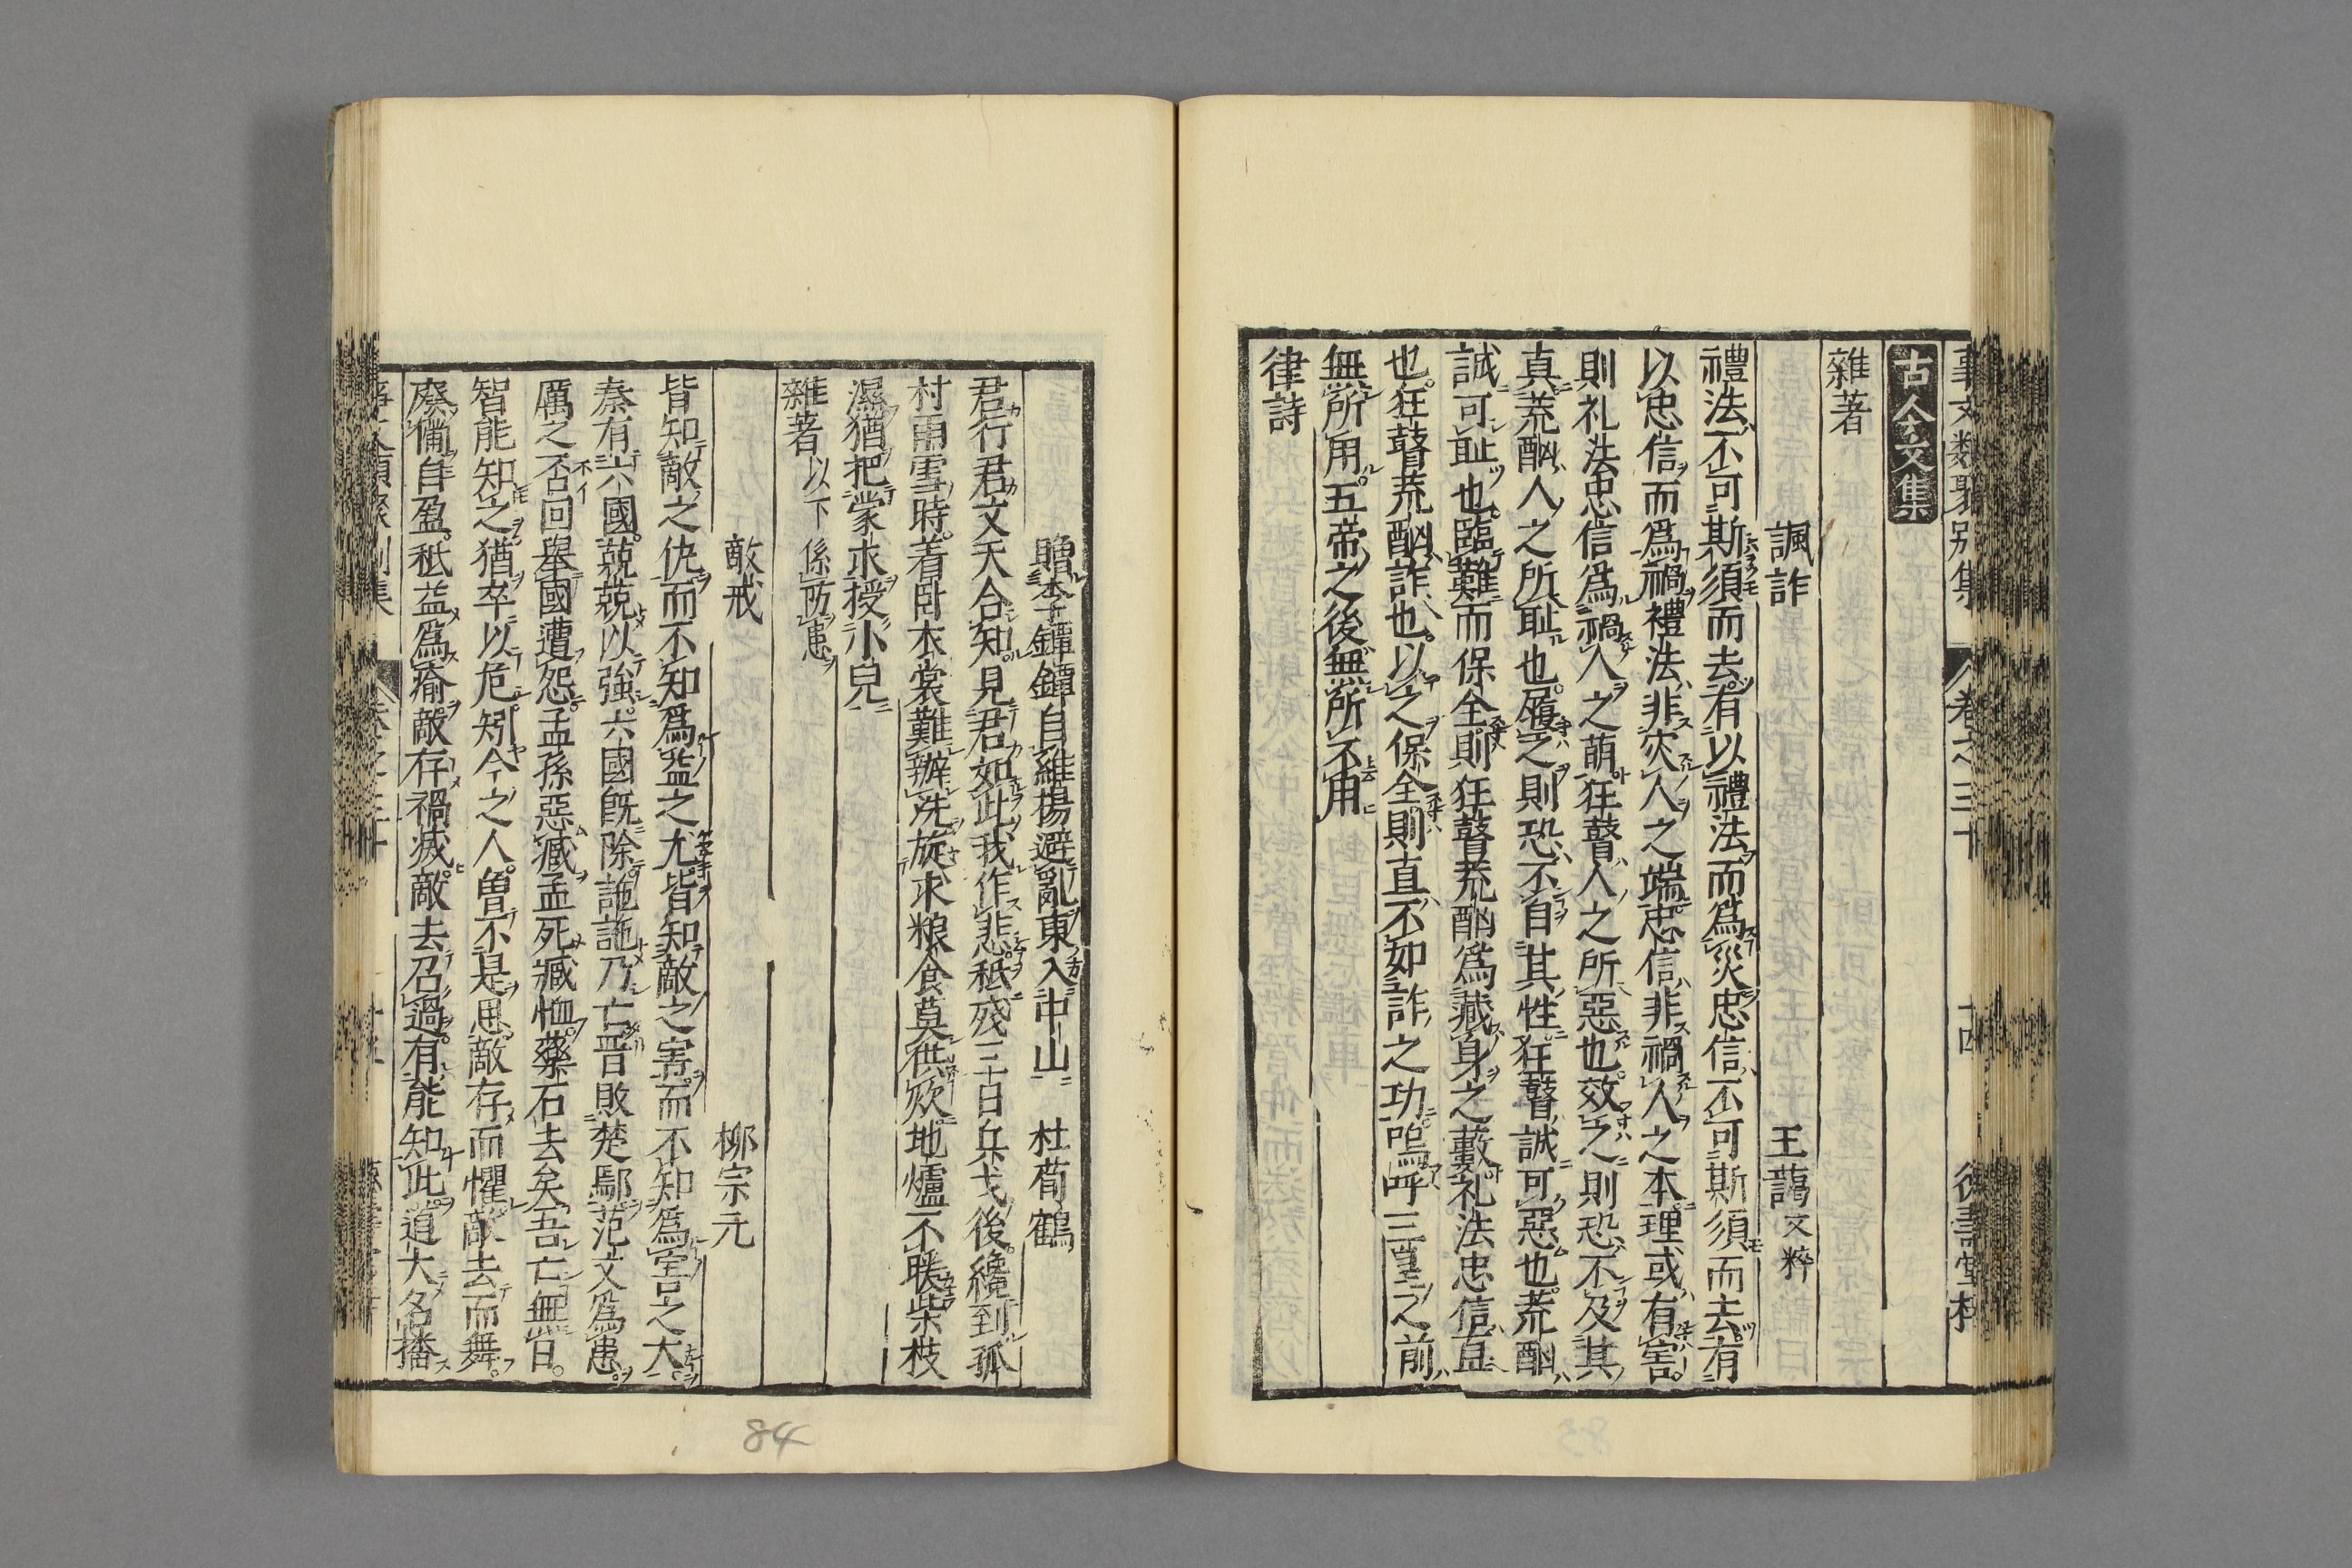 事文類聚別集 卷之三十 十四 德壽堂梓
古今文集
雜著
諷詐 王藹文粹
禮法不可斯須而去有以禮法而爲災忠信不可斯須而去有
以忠信而爲禍禮法非灾人之端忠信非禍人之本理或有害
則礼法忠信爲禍人之萌狂瞽人之所惡也效之則恐不及其
真荒酗人之所耻也履之則恐不自其性狂瞽誠可惡也荒酗
誠可耻也臨難而保全則狂瞽荒酗爲藏身之藪礼法忠信直
也狂瞽荒酗詐也以之保全則直不如詐之功嗚呼三皇之前
無所用五帝之後無所不用
律詩
贈李鐔鐔自維揚避亂東入中山 杜荀鶴
君行君文天合知見君如此我作悲秪殘三十口兵戈後纔到孤
村雨雪時着卧衣裳難辦洗旋求粮食莫供炊地爐不暖柴枝
濕猶把蒙求授小兒
雜著以下係防患
敵戒 柳宗元
皆知敵之仇而不知爲益之尤皆知敵之害而不知爲害之大
秦有六國兢兢以強六國旣除訑訑乃亡晋敗楚鄢范文爲患
厲之不回舉國遭怨孟孫惡臧孟死臧恤藥石去矣吾亡無日
智能知之猶卒以危矧今之人曽不是思敵存而懼敵去而舞
廢備自盈秪益爲瘉敵存禍滅敵去召過有能知此道大名播
84